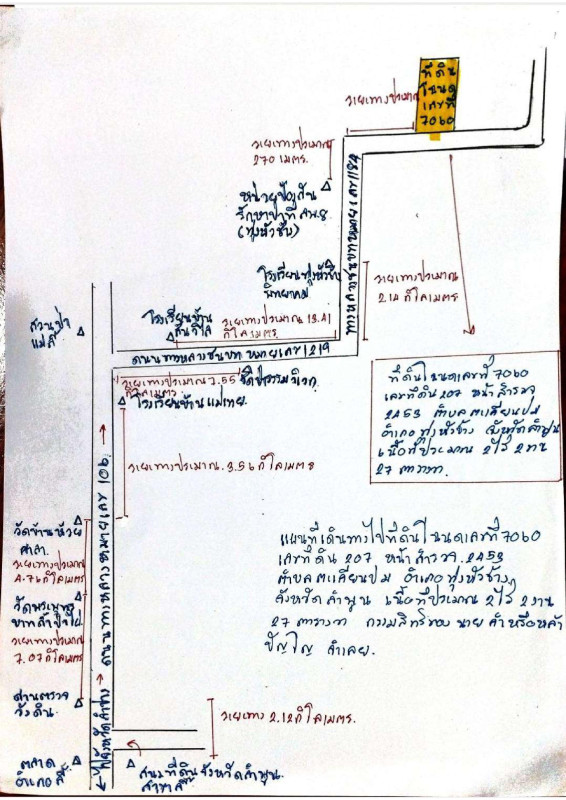 ที่ดิน
โฉนด
เลขที่
7060
ระยะทางประมาณ
ระยะทางประมาณ
270 เมตร.
หน่วยป้องกัน
รักษาป่าที่ ลพ.8
(ทุ่งหัวช้าง)
ทางหลวงชนบทหมายเลข 1184
โรงเรียนทุ่งหัวช้าง
พิทยาคม
ระยะทางประมาณ
2.14 กิโลเมตร
สวนป่า
แม่ลี้
โรงเรียนบ้าน
สันดีไล
ระยะทางประมาณ 13.41
กิโลเมตร.
ถนนทางหลวงชนบท หมายเลข 1219
ระยะทางประมาณ 3.55
กิโลเมตร
วัดป่าธรรมนิเวก
โรงเรียนบ้านแม่เทย.
ที่ดินโฉนดเลขที่ 7060
เลขที่ดิน 207 หน้าสำรวจ
2453 ตำบลตะเคียนปม
อำเภอทุ่งหัวช้าง จังหวัดลำพูน
เนื้อที่ประมาณ 2 ไร่ 2 งาน
27 ตารางวา.
ระยะทางประมาณ 3.56 กิโลเมตร
ถนนทางหลวงหมายเลข 106
วัดบ้านห้วย
ศาลา
ระยะทางประมาณ
4.76 กิโลเมตร
วัดพระพุทธ
บาท
ระยะทางประมาณ
7.07 กิโลเมตร
แผนที่เดินทางไปที่ดินโฉนดเลขที่ 7060
เลขที่ดิน 207 หน้าสำรวจ 2453
ตำบลตะเคียนปม อำเภอทุ่งหัวช้าง
จังหวัดลำพูน เนื้อที่ประมาณ 2 ไร่ 2 งาน
27 ตารางวา กรรมสิทธิ์ของ นาย คำ หรือหล้า
ปัญโญ จำเลย.
ด่านตรวจ
วังดิน.
ระยะทาง 2.12 กิโลเมตร.
ตลาด
อำเภอลี้
สนง.ที่ดินจังหวัดลำพูน
สาขาลี้